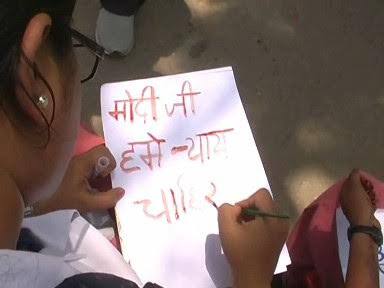 मोदी जी
हमे न्याय
चाहिए